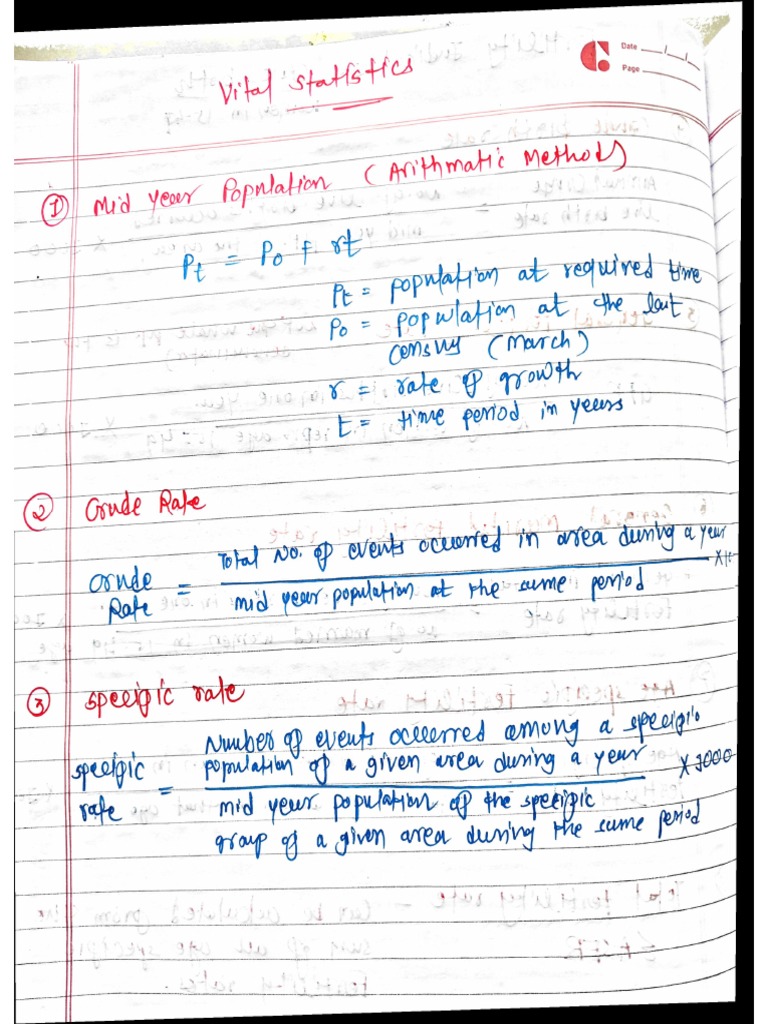 Date
Page
Vital Statistics
① Mid year Population (Arithmatic Method)
Pt = Po + rt
Pt = population at required time
Po = population at the last
census (March)
r = rate of growth
t = time period in years
② Crude Rate
Crude Rate = Total No. of events occurred in area during a year
mid year population at the same period
③ Specific rate
Number of events occurred among a specific
specific rate = population of a given area during a year X 1000
mid year population of the specific
group of a given area during the same period